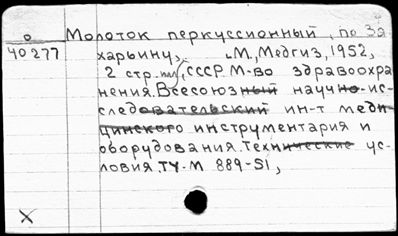 о Молоток перкуссионный, по За
40277 харьину, М., Медгиз, 1952,
2 стр. илл, СССР. М-во здравоохра
нения. Всесоюзный научно-ис-
следовательский ин-т меди
цинского инструментария и
оборудования. Технические ус-
ловия. ТУ-М 889-51,
X